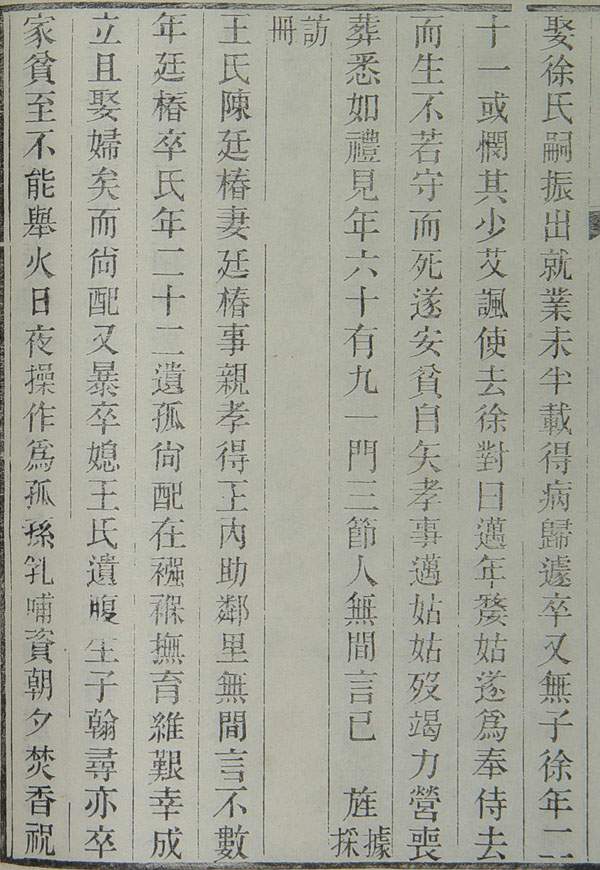 娶徐氏嗣振出就業未半載得病歸遽卒又無子徐年二
十一或憫其少艾諷使去徐對曰邁年嫠姑遂爲奉侍去
而生不若守而死遂安貧自矢孝事邁姑姑歿竭力營喪
葬悉如禮見年六十有九一門三節人無間言已 旌 據採
訪冊
王氏陳廷椿妻廷椿事親孝得王內助鄰里無間言不數
年廷椿卒氏年二十二遺孤尙配在襁褓撫育維艱幸成
立且娶婦矣而尙配又暴卒媳王氏遺腹生子翰尋亦卒
家貧至不能舉火日夜操作爲孤孫乳哺資朝夕焚香祝